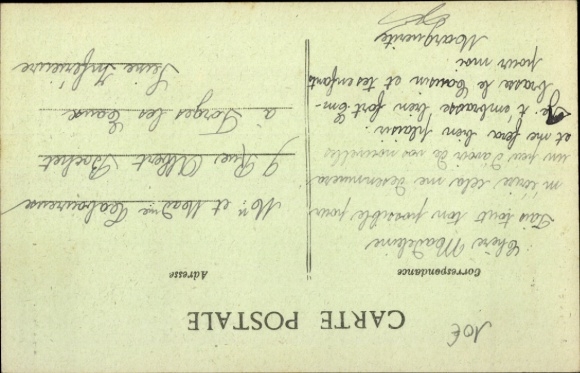 10€
CARTE POSTALE
Correspondance
Chère Madeleine
Fais tout ton possible pour
m'écrire cela me désennuiera
un peu d'avoir de vos nouvelles
et me fera bien plaisir.
Je t'embrasse bien fort Em-
brasse le Cousin et tes enfants
pour moi
Marguerite
Adresse
Mr et Madme
7 Rue Albert Bochet
à Forges les Eaux
Seine Inférieure